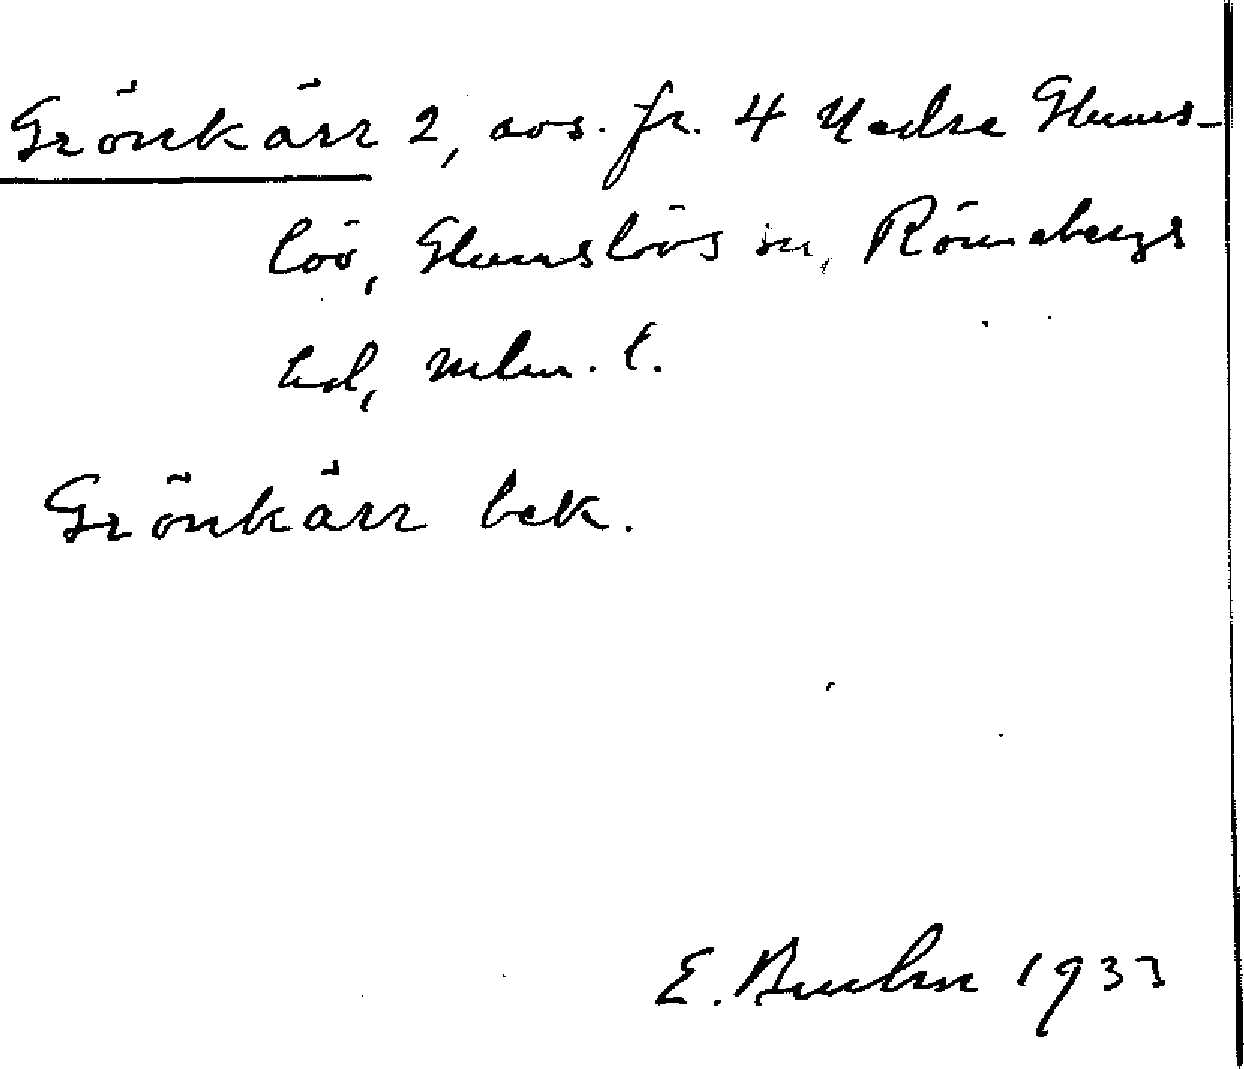 Grönkärr 2, avs. fr. 4 Nedre Glums-
löv, Glumslövs sn, Rönnebergs
hd, Mlm. l.
Grönkärr bek.
E. Bruhn 1933